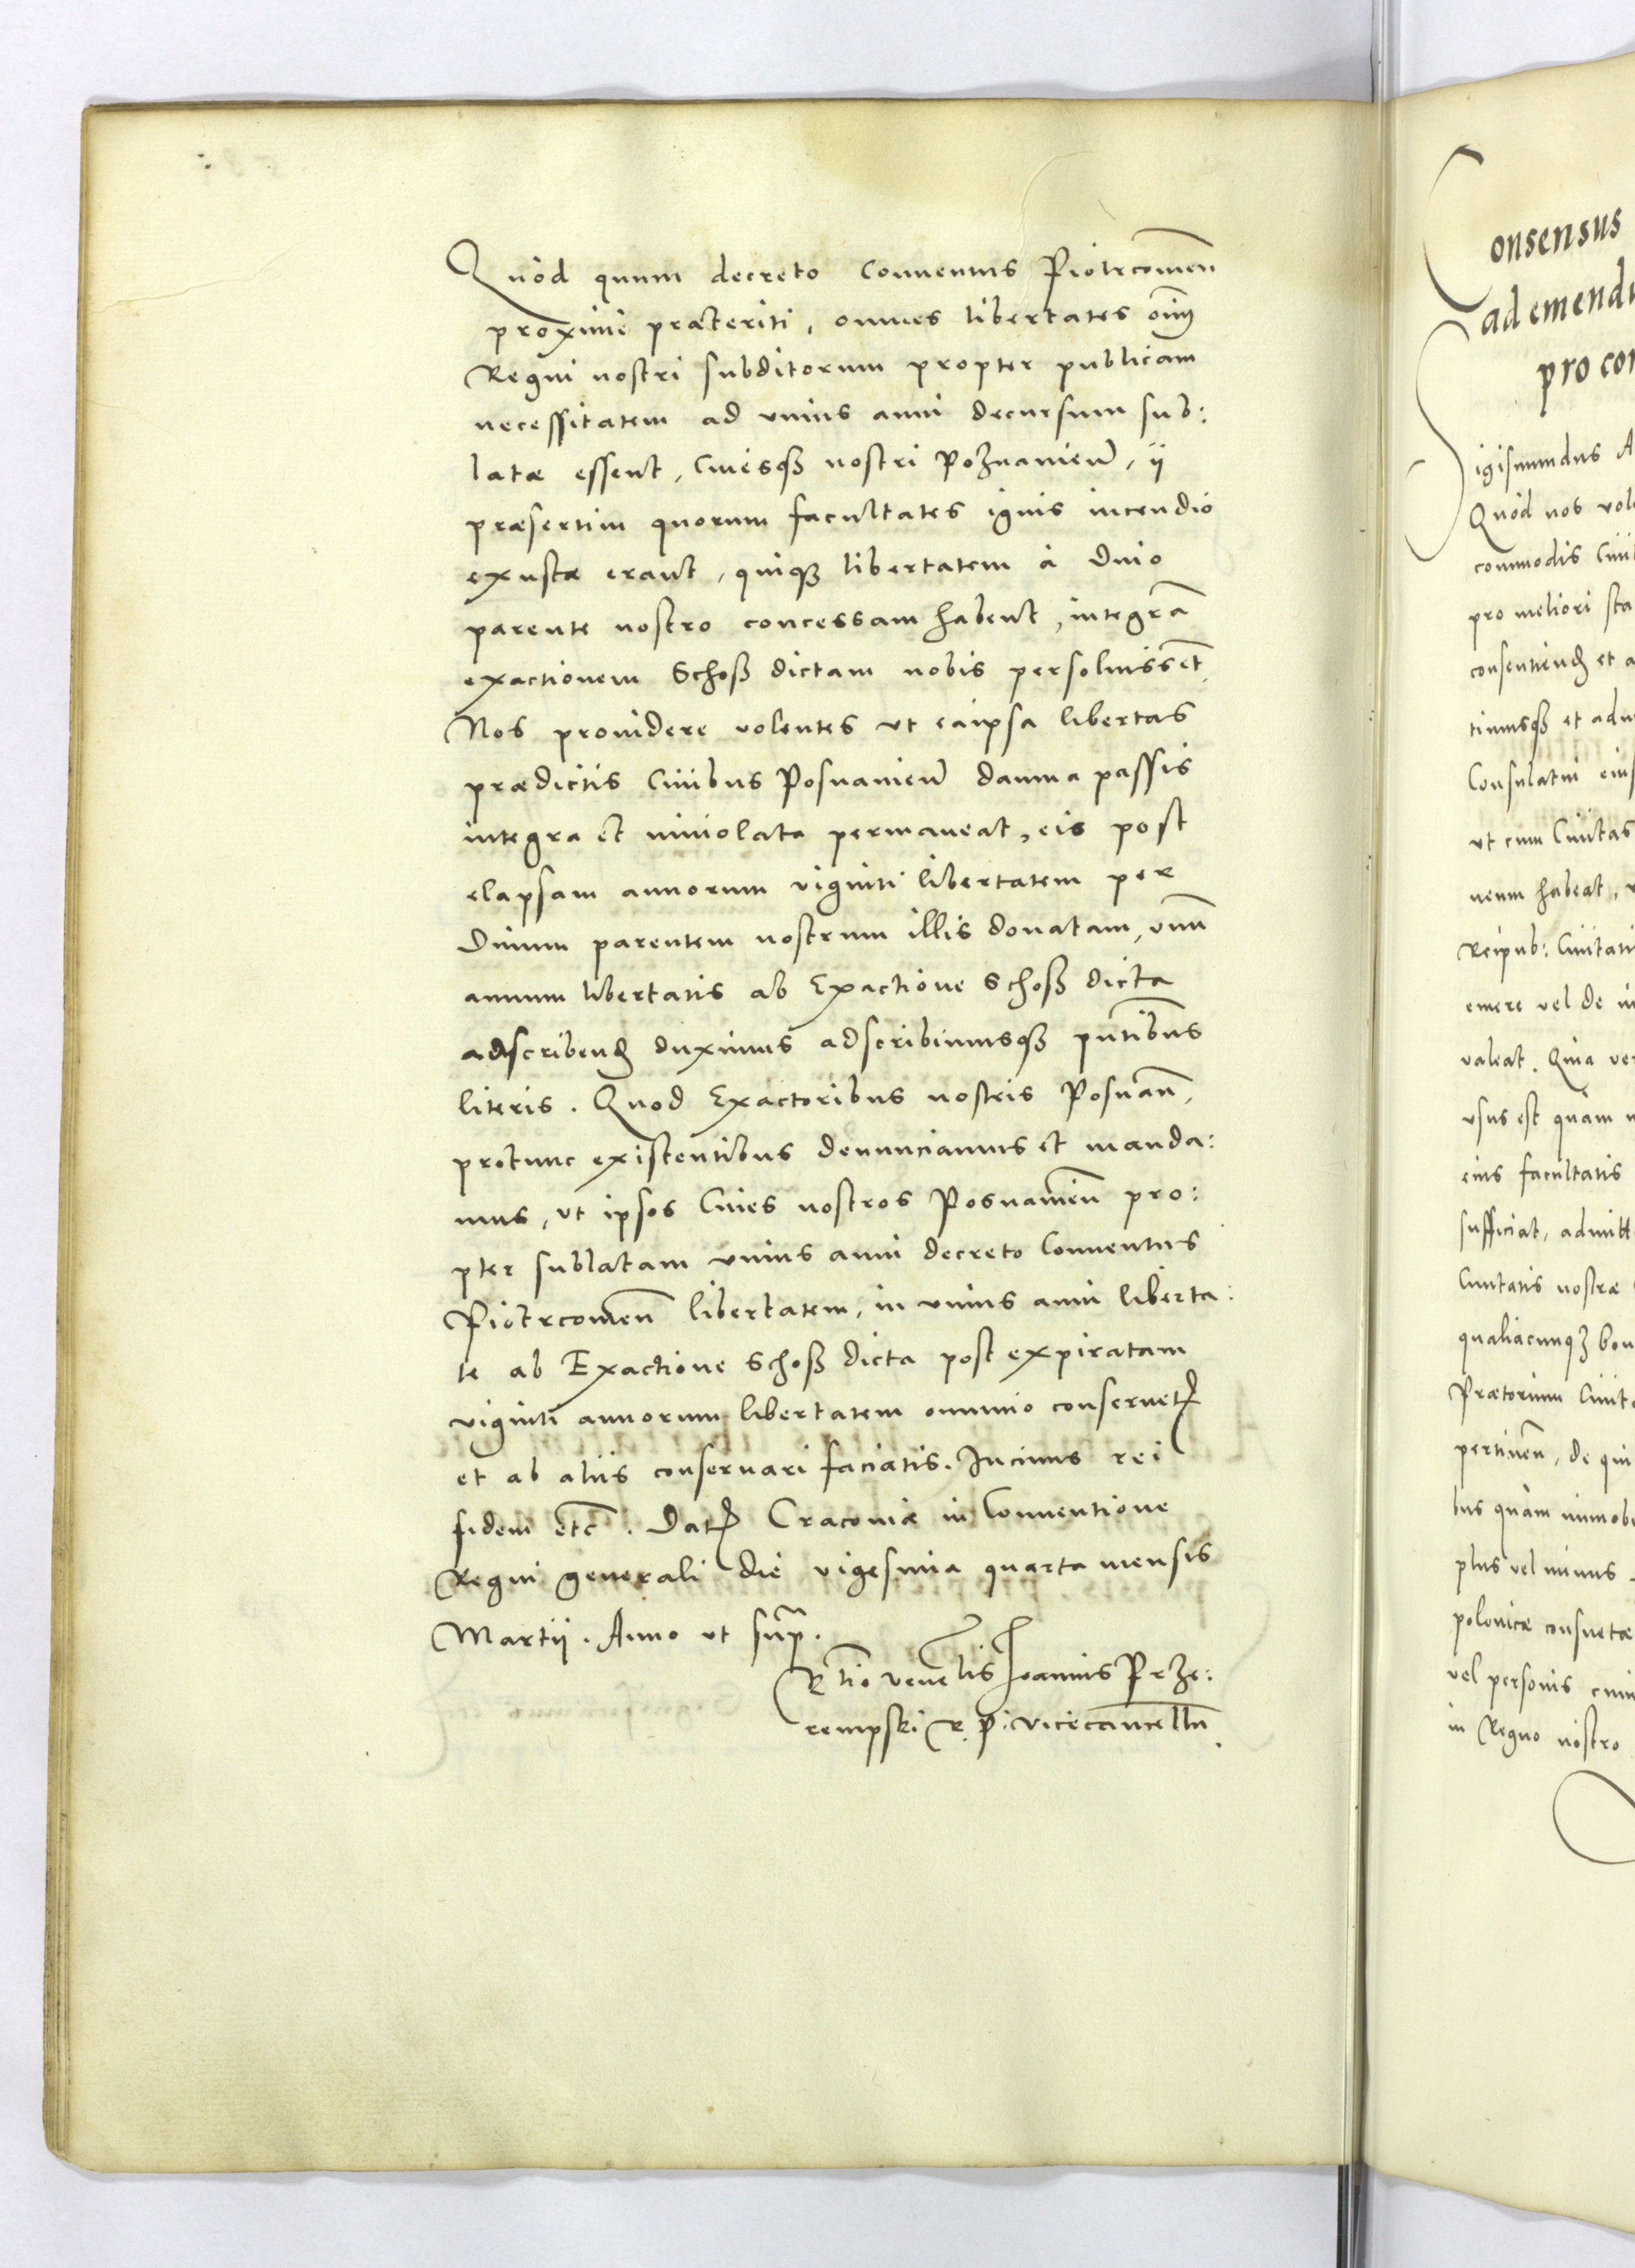 Quòd quum decreto Conuentus Piotrcouien̄
proximè præteriti, omnes libertates om̄iū
Regni nostri subditorum propter publicam
necessitatem ad vnius anni decursum sub:
latæ essent, Ciuesqꝫ nostri Poznanien̄, ij
præsertim quorum facultates ignis incendio
exustæ erant, quiqꝫ libertatem à Diuo
parente nostro concessam habent, integrā
exactionem Schoß dictam nobis persoluissēt,
Nos prouidere volentes vt eaipsa libertas
prædictis Ciuibus Posnanien̄ damna passis
integra et inuiolata permaneat, eis post
elapsam annorum viginti libertatem per
Diuum parentem nostrum illis donatam, vnū
annum libertatis ab Exactione Schoß dicta
adscribend duximus adscribimusqꝫ pn̄tibus
literis. Quod Exactoribus nostris Posnan̄,
protunc existentibus denunciamus et manda:
mus, vt ipsos Ciues nostros Posnanien̄ pro:
pter sublatam vnius anni decreto Conuentus
Piotrcouien̄ libertatem, in vnius anni liberta:
te ab Exactione Schoß dicta post expiratam
viginti annorum libertatem omnino conseruetꝭ
et ab aliis conseruari faciatis. In cuius rei
fidem etc̄. Datꝭ Cracouiæ in Conuentione
Regni generali die vigesima quarta mensis
Martij. Anno vt sup̄.
Rt̄io Vene͞lis Joannis Prze:
rempski R. P. Vicecancell̄n.
onsensus
ad emendu
pro con
igismundus A
Quòd nos vol
commodis Ciui
pro meliori sta
consentiend et a
timusqꝫ et adm
Consulatui eius
vt cum Ciuitas
neum habeat,
Reipub: Ciuitati
emere vel de in
valeat. Quia ver
vsus est quàm
eius facultatis
sufficiat, admitt
Ciuitatis nostræ
qualiacunqꝫ bon
Prætorium Ciuita
pertinen̄, de qui
bus quàm immobi
plus vel minus
polonicæ consuetæ
vel personis cuiu
in Regno nostro